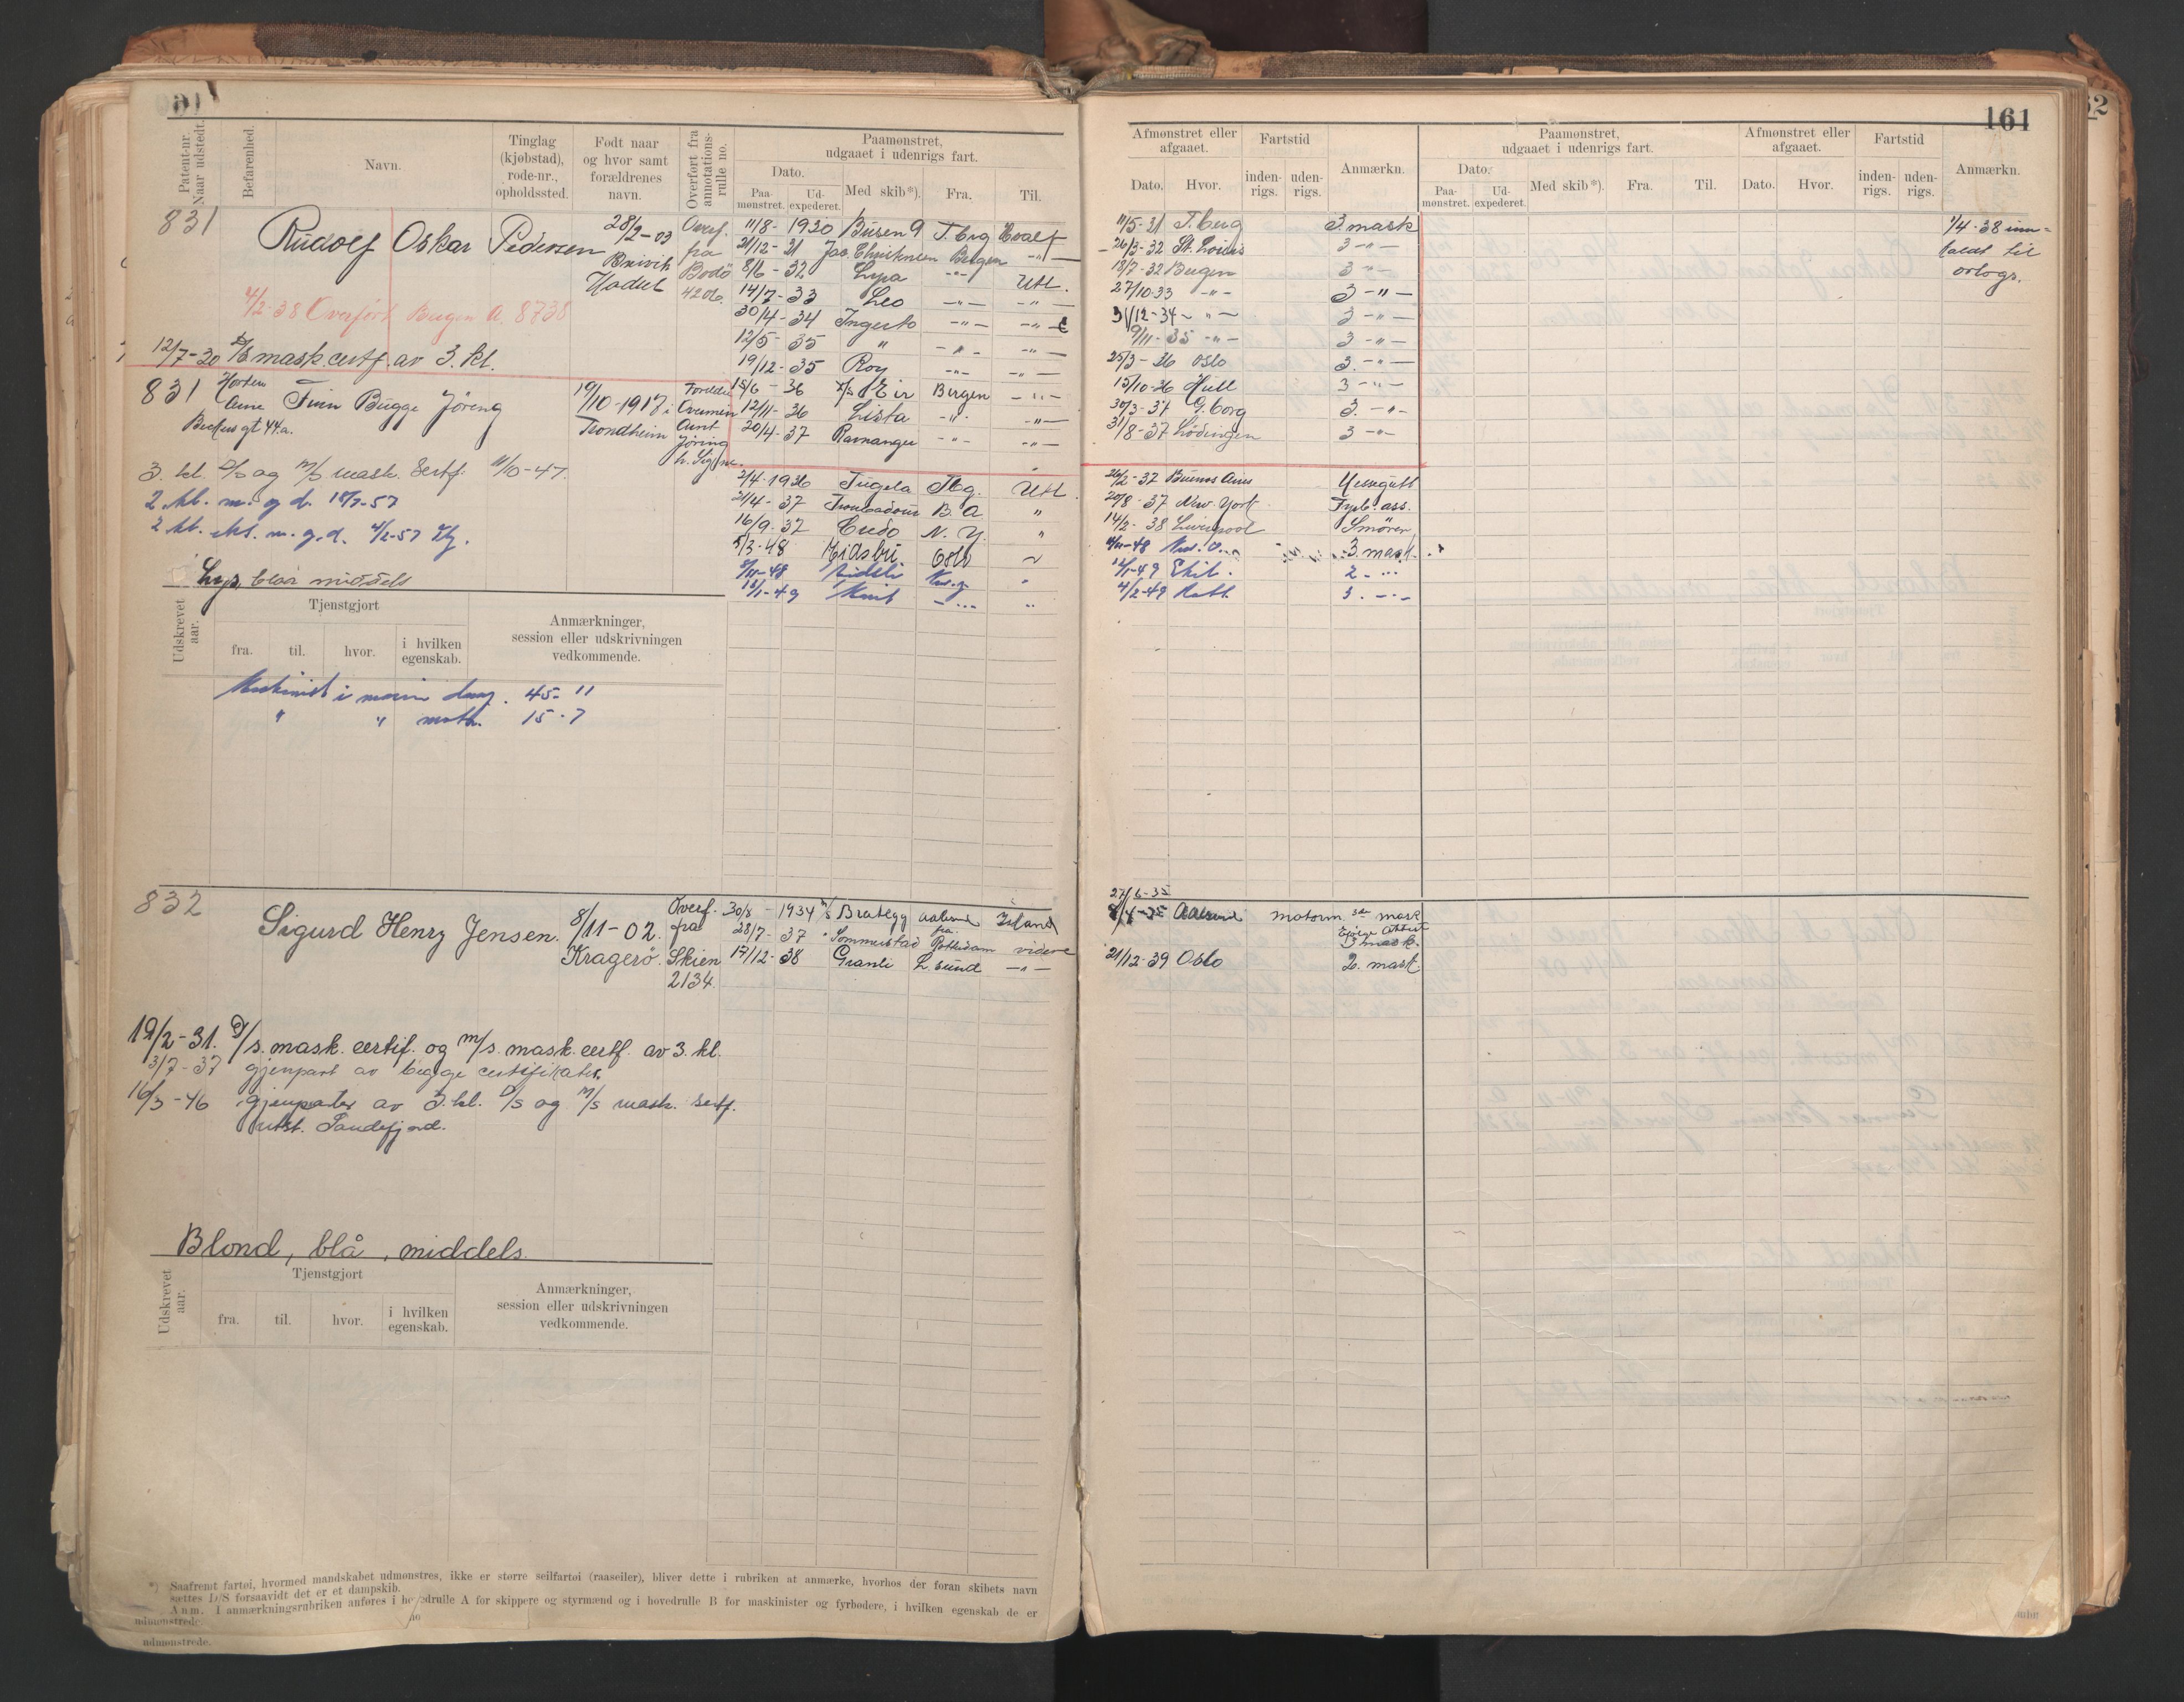 161
Patent-nr. Naar udstedt.
Befarenhed.
Navn.
Tinglag (kjøbstad), rode-nr., opholdssted.
Født naar og hvor samt forældrenes navn.
Overført fra annotations-rulle no.
Paamønstret, udgaaet i udenrigs fart.
Dato.
Paa-mønstret.
Ud-expederet.
Med skib*).
Fra.
Til.
Afmønstret eller afgaaet.
Dato.
Hvor.
Fartstid
inden-rigs.
uden-rigs.
Anmærkn.
Paamønstret, udgaaet i udenrigs fart.
Dato.
Paa-mønstret.
Ud-expederet.
Med skib*).
Fra.
Til.
Afmønstret eller afgaaet.
Dato.
Hvor.
Fartstid
inden-rigs.
uden-rigs.
Anmærkn.
831
Rudolf Oskar Pedersen
28/2-03
Hadsel
Overf. fra Bodö 4206.
4/2-38 Overført Bergen A. 8738
12/7-30 D/S mask. certf. av 3. kl.
11/8-1930 Busen 9 T.brg Hvalf
21/12-31 Jac. Christensen Bergen -"-
8/6-32 Lysa -"- Utl.
14/7-33 Leo -"- -"-
30/4-34 Ingerto -"- -"-
12/5-35 " -"- -"-
19/12-35 Roy -"- -"-
15/6-36 Eir Bergen -"-
12/11-36 Lista -"- -"-
20/4-37 Rananger -"- -"-
11/5-31 T.berg 3. mask
26/3-32 St. Louis 3 -"-
18/7-32 Bergen 3 -"-
27/10-33 -"- 3 -"-
31/12-34 -"- 3 -"-
9/11-35 -"- 3 -"-
25/3-36 Oslo 3. -"-
15/10-36 Hull 3 -"-
30/3-37 G.borg 3. -"-
31/8-37 Lödingen 3 -"-
1/4-38 inn-
kaldt til
orlogs.
831 Horten
Arne Finn Bugge Jöreng
Beckers gt 44.a.
19/10-1917 i
Trondheim
Foreldre
Arnt
Jöring
h. Signe.
3. kl. D/S og M/S mask. Sertf. 11/10-47.
2 kl. m. g d. 18/7-57
2 kl. eks. m. g. d. 4/2-57
Lys, blaa middels
2/4-1936 Tugela Tbg. Utl.
21/4-37 Troubadour B.A "
16/9-37 Credo N.Y. "
5/3-48 Midsbu Oslo
26/2-37 Buenos Aires
20/8-37 New York Fyrb. ass.
14/2-38 Liverpool Smörer
3. mask.
4/2-49
Udskrevet aar.
Tjenstgjort
fra.
til.
hvor.
i hvilken egenskab.
Anmærkninger, session eller udskrivningen vedkommende.
Maskinist i marin 45-11
" " 15-7
832
Sigurd Henry Jensen.
8/11-02.
Kragerö.
Overf. fra Skien 2134.
30/8-1934 M/S Brategg Aalesund Island
28/7-37 " Sommerstad fra Rotterdam videre
17/12-38 Granli L.sund -"-
27/6-35
Aalesund motorm. 3die mask
3 mask.
21/12-39 Oslo 2. mask.
19/2-31. D/S. mask. certif. og M/S. mask. certf. av 3. kl.
3/7-37 gjenpart av begge certifikater.
16/3-46 gjenparter av 3. kl. D/S og M/S mask. sertf.
utst. Sandefjord.
Blond, blå, middels.
Udskrevet aar.
Tjenstgjort
fra.
til.
hvor.
i hvilken egenskab.
Anmærkninger, session eller udskrivningen vedkommende.
*) Saafremt fartøi, hvormed mandskabet udmønstres, ikke er større seilfartøi (raaseiler), bliver dette i rubriken at anmærke, hvorhos der foran skibets navn
sættes D/S forsaavidt det er et dampskib.
Anm. I anmærkningsrubriken anføres i hovedrulle A for skippere og styrmænd og i hovedrulle B for maskinister og fyrbødere, i hvilken egenskab de er
udmønstrede.
udmønstrede.